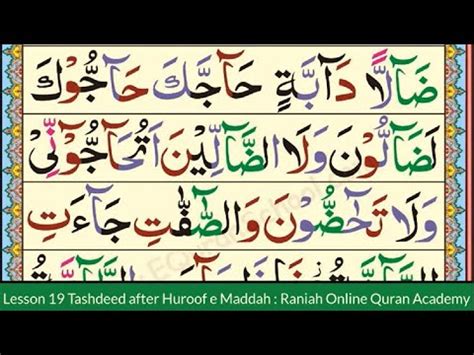 ضَآلًّا دَآبَّةٍ حَآجَّكَ حَآجُّوْكَ
لَضَآلُّوْنَ وَلَا الضَّآلِّيْنَ اَتُحَآجُّوْٓنِّيْ
وَلَا تَحٰٓضُّوْنَ وَالصّٰٓفّٰتِ جَآءَتِ
Lesson 19 Tashdeed after Huroof e Maddah : Raniah Online Quran Academy